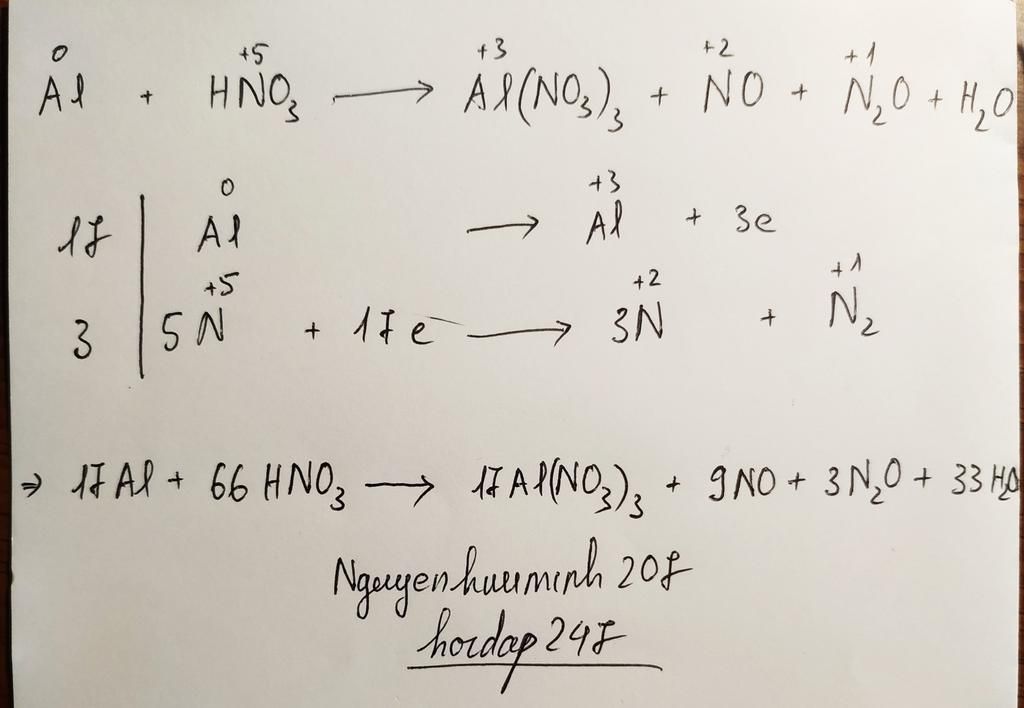 0 +5 +3 +2 +1
Al + HNO3 → Al(NO3)3 + NO + N2O + H2O
0 +3
17 | Al → Al + 3e
+5 +2 +1
3 | 5N + 17e → 3N + N2
⇒ 17Al + 66HNO3 → 17Al(NO3)3 + 9NO + 3N2O + 33H2O
Nguyenhuuminh 207
hoidap247